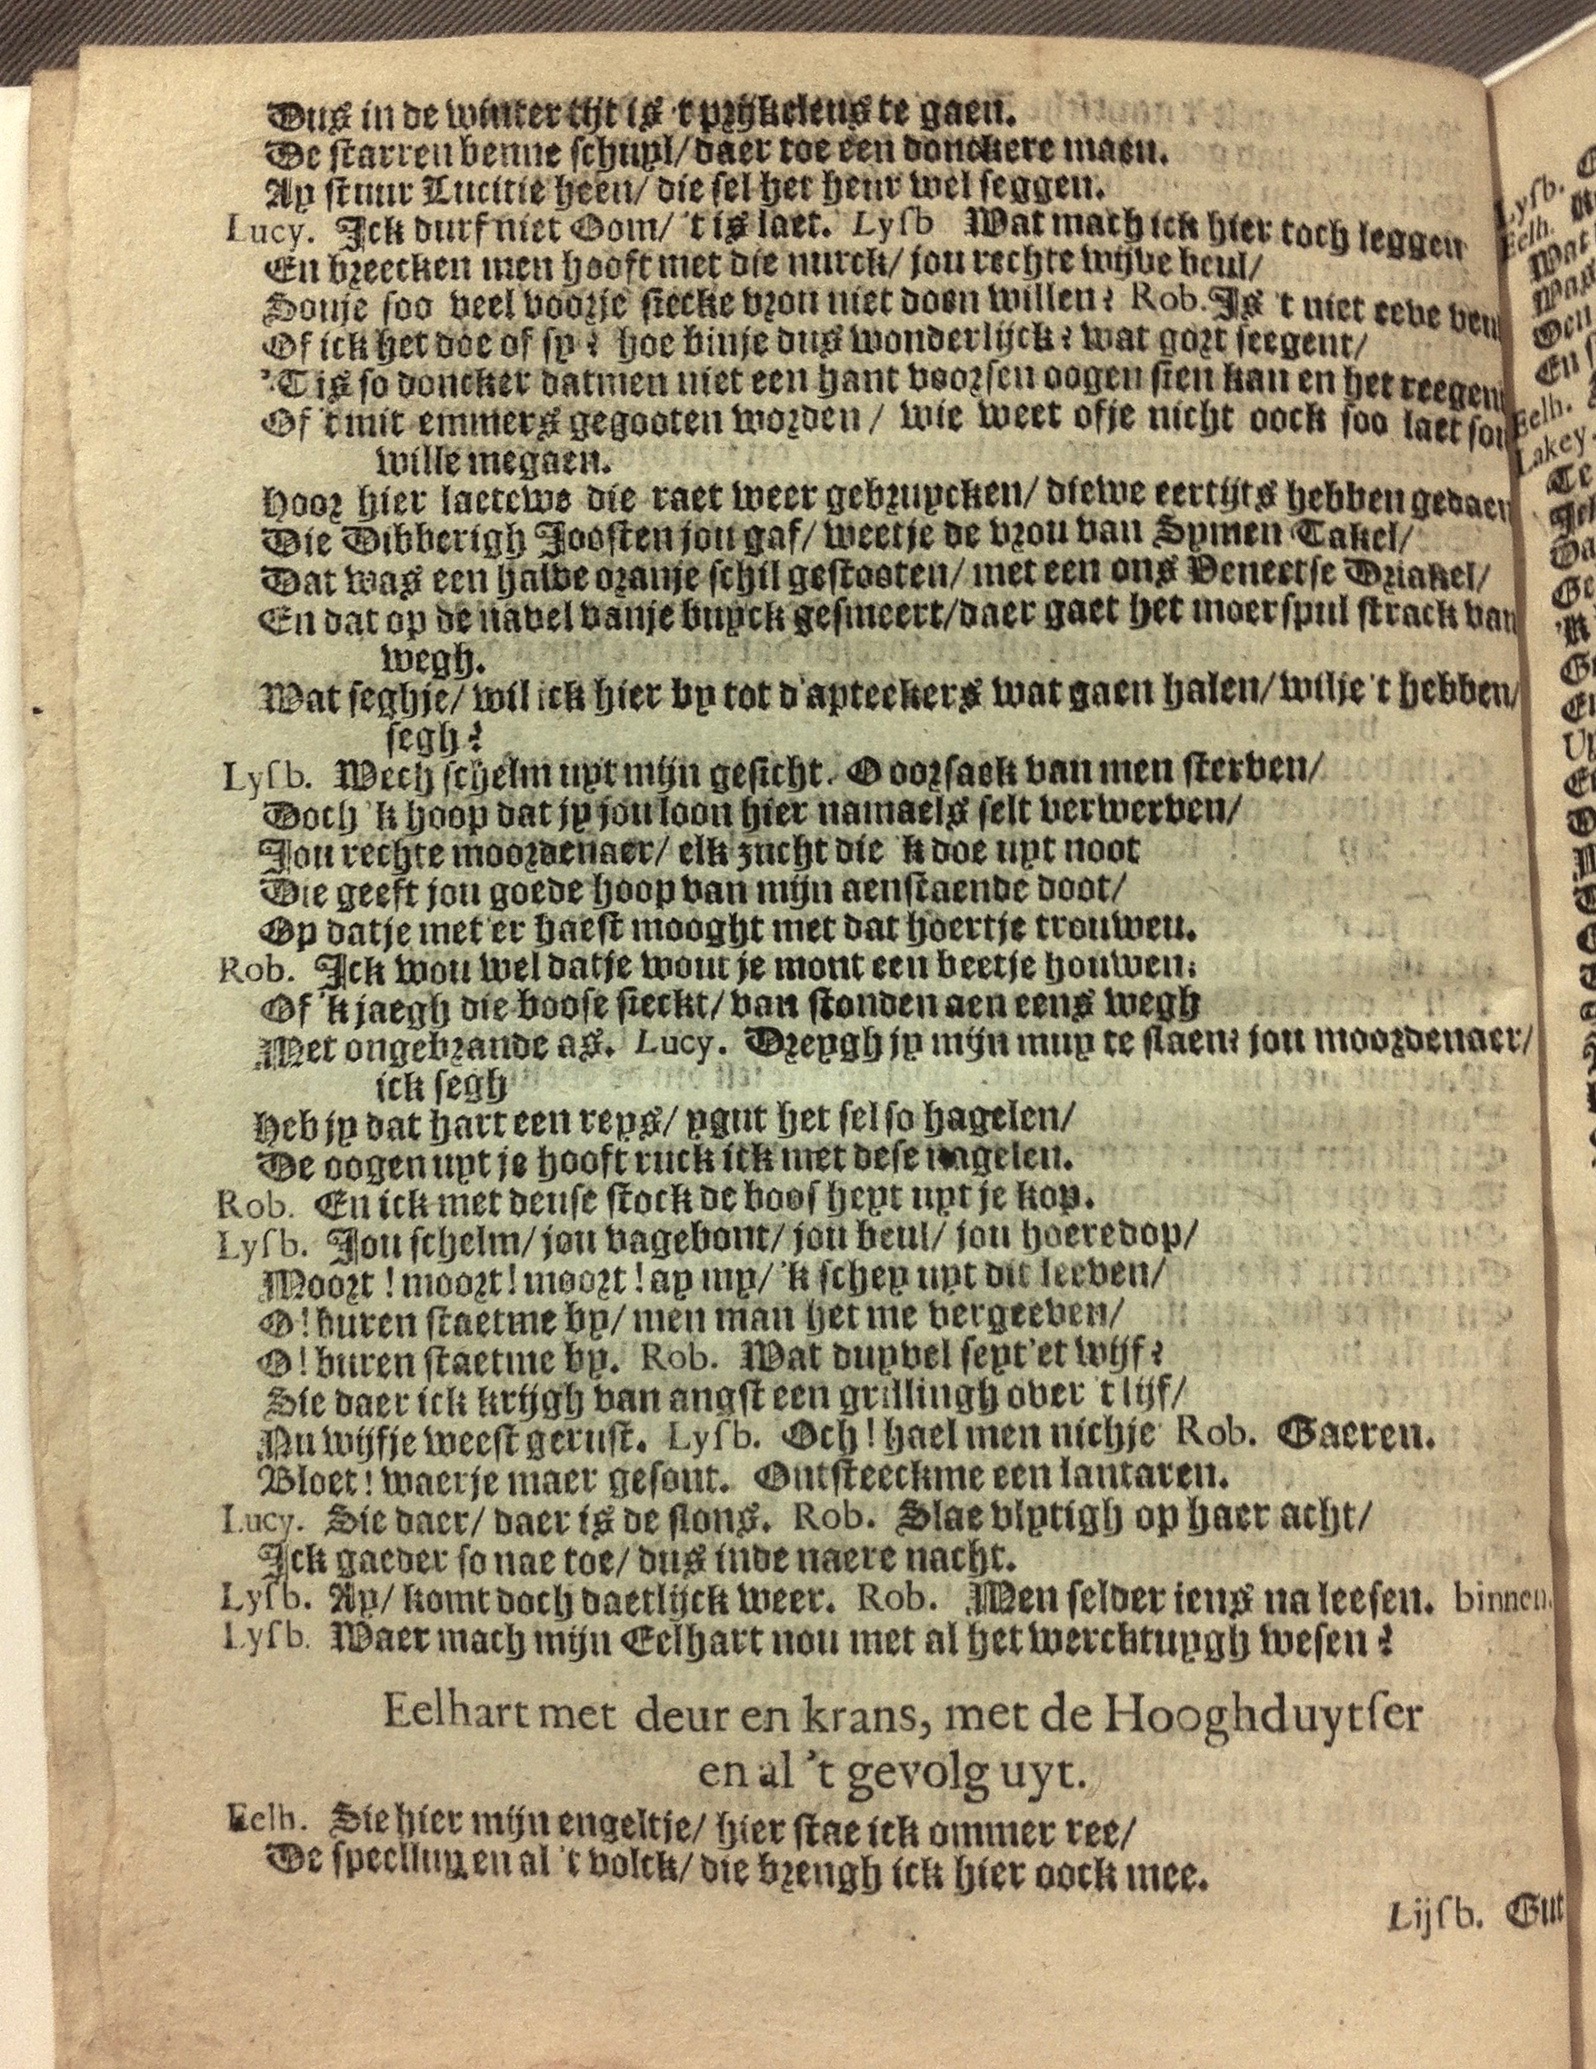 Dus in de winter tijt is 't prijkeleus te gaen.
De starren benne schuyl/ daer toe een donckere maen.
Ay stuur Lucitie heen/ die sel het heur wel seggen.
Lucy. Ick durf niet Oom/ 't is laet. Lysb Wat mach ick hier toch leggen
En breecken men hooft met die nurck/ jou rechte wijve beul/
Souje soo veel voorje siecke vrou niet doen willen? Rob. Is 't niet eeve veu
Of ick het doe of sy? hoe binje dus wonderlijck? wat gort seegent/
'T is so doncker datmen niet een hant voorsen oogen sien kan en het reegent
Of 't mit emmers gegooten worden/ wie weet ofje nicht oock soo laet sou
wille megaen.
Hoor hier laetewe die raet weer gebruycken/ diewe eertijts hebben gedaen
Die Dibberigh Joosten jou gaf/ weetje de vrou van Symen Takel/
Dat was een halve oranje schil gestooten/ met een ons Veneetse Driakel/
En dat op de navel vanje buyck gesmeert/ daer gaet het moerspul strack van
wegh.
Wat seghje/ wil ick hier by tot d'apteekers wat gaen halen/ wilje 't hebben/
segh?
Lysb. Wech schelm uyt mijn gesicht. O oorsaek van men sterven/
Doch 'k hoop dat jy jou loon hier namaels selt verwerven/
Jou rechte moordenaer/ elk zucht die 'k doe uyt noot
Die geeft jou goede hoop van mijn aenstaende doot/
Op datje met'er haest mooght met dat hoertje trouwen.
Rob. Ick wou wel datje wout je mont een beetje houwen:
Of 'k jaegh die boose sieckt/ van stonden aen eens wegh
Met ongebrande as. Lucy. Dreygh jy mijn muy te slaen? jou moordenaer/
ick segh
Heb jy dat hart een reys/ ygut het sel so hagelen/
De oogen uyt je hooft ruck ick met dese nagelen.
Rob. En ick met deuse stock de boosheyt uyt je kop.
Lysb. Jou schelm/ jou vagebont/ jou beul/ jou hoeredop/
Moort! moort! moort! ay my/ 'k schey uyt dit leeven/
O! buren staetme by/ men man het me vergeeven/
O! buren staetme by. Rob. Wat duyvel seyt'et wijf?
Sie daer ick krijgh van angst een grillingh over 't lijf/
Nu wijfje weest gerust. Lysb. Och! hael men nichje Rob. Gaeren.
Bloet! waerje maer gesont. Ontsteeckme een lantaren.
Lucy. Sie daer/ daer is de slons. Rob. Slae vlytigh op haer acht/
Ick gaeder so nae toe/ dus inde naere nacht.
Lysb. Ay/ komt doch daetlijck weer. Rob. Men selder iens na leesen. binnen.
Lysb. Waer mach mijn Eelhart nou met al het wercktuygh wesen?
Eelhart met deur en krans, met de Hooghduytser
en al 't gevolg uyt.
Eelh. Sie hier mijn engeltje/ hier stae ick ommer ree/
De speelluy en al 't volck/ die brengh ick hier oock mee.
Lijsb. Gut